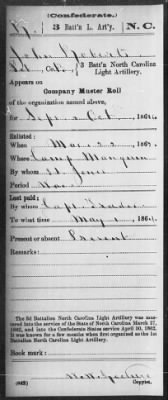 (Confederate.)
3 Batt'n L. Art'y. N. C.
John
3 Batt'n North Carolina
Light Artillery.
Appears on
Company Muster Roll
of the organization named above,
for Sept & Oct, 1864.
Enlisted:
When Mar 22, 186
Where Camp Mangum
By whom Jones
Period War
Last paid:
By whom Capt
To what time May 1, 1864.
Present or absent Present
Remarks:
The 3d Battalion North Carolina Light Artillery was mustered
into the service of the State of North Carolina March 17,
1862, and into the Confederate States service April 30, 1862.
It was known for a few months when first organized as the 1st
Battalion North Carolina Light Artillery.
Book mark:
(642) Copyist.